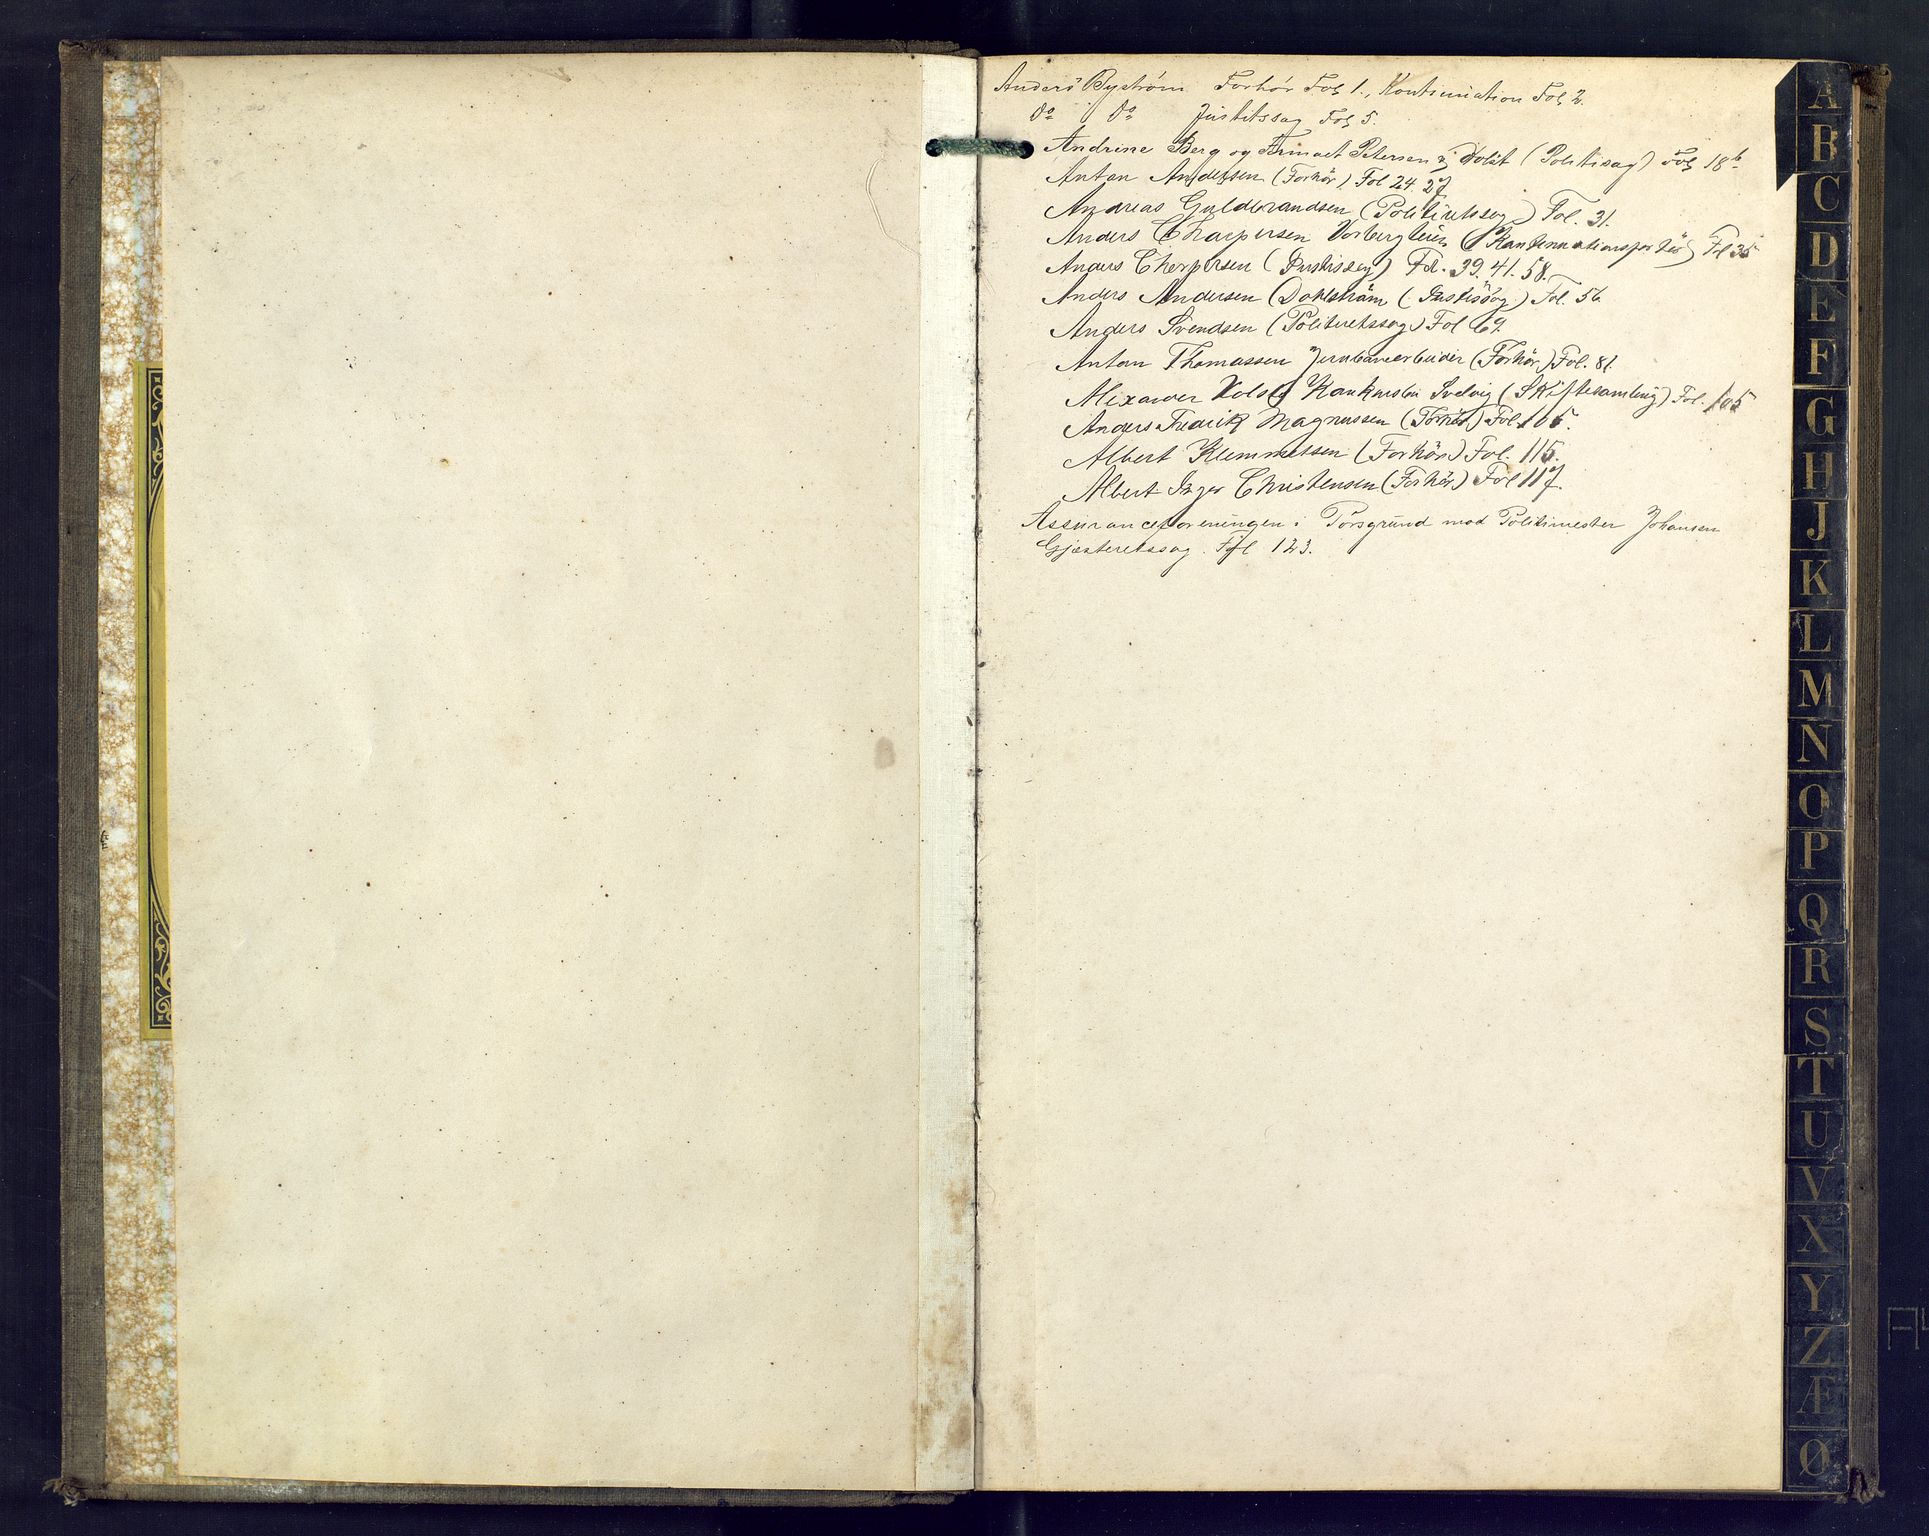 Anders Byström Forhör Fol 1., Kontinuation Fol 2.
Do Do Justitssag Fol 5.
Andrine Berg og Petersen Holst (Politisag) Fol 18b
Anton Andersen (Forhör) Fol 24. 27
Andreas Guldbrandsen (Politiretssag) Fol. 31.
Anders Charpersen (Kontinuationsforhör) Fol 35
Anders Cherpersen (Justissag) Fol. 39. 41. 58.
Anders Andersen (Dahlström (Justissag) Fol. 56
Anders Svendsen (Politiretssag) Fol 69.
Anton Thomassen Jernbanearbeider (Forhör) Fol. 81.
Alexander Svelvig (Skiftesamling) Fol. 105
Anders Fredrik Magnussen (Forhör) Fol 105.
Albert Klemmetsen (Forhör) Fol. 115.
Albert Inger Christensen (Forhör) Fol 117.
Assuranceforeningen i Porsgrund mod Politimester Johansen
Gjesteretssag. Fol 123.
A
B
C
D
E
F
G
H
J
K
L
M
N
O
P
Q
R
S
T
U
V
X
Y
Z
Æ
Ø